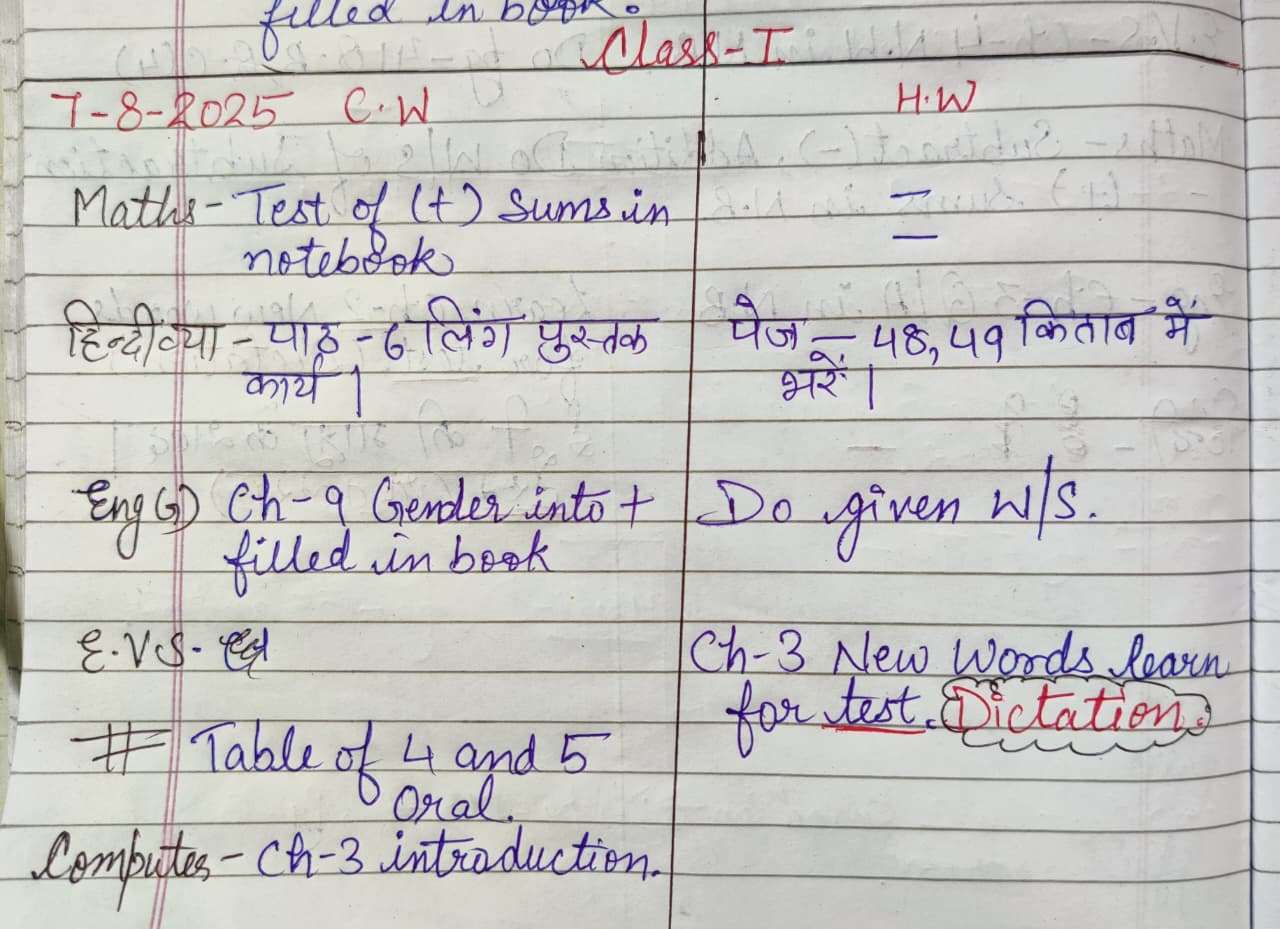 filled in book.
Class-I
7-8-2025 C.W H.W
Maths- Test of (+) Sums in
notebook
हिन्दी व्या - पाठ -6 लिंग पुस्तक पेज - 48,49 किताब में
कार्य । भरें ।
Eng(G) Ch-9 Gender into + Do given W/S.
filled in book
E.V.S. Ch-3 New Words learn
for test. Dictation.
# Table of 4 and 5
Oral.
Computer - Ch-3 introduction.